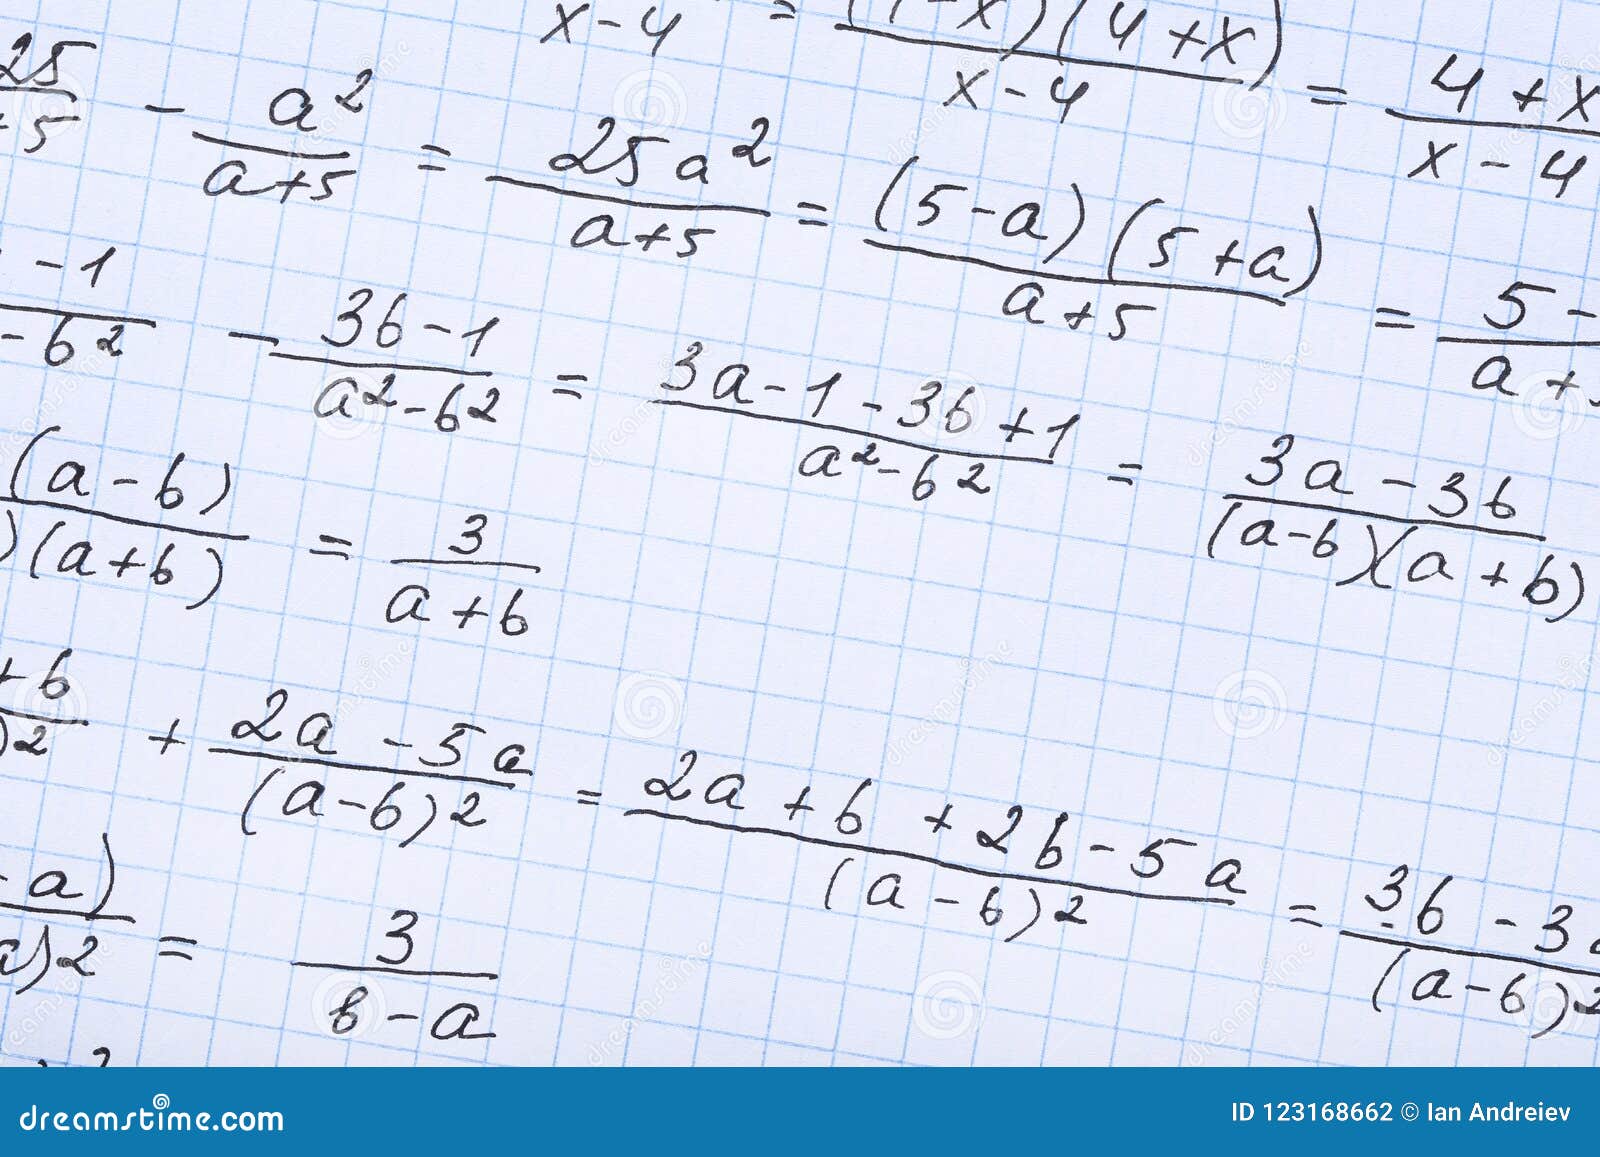 x-4 = (4+x) / x-4 = 4+x / x-4
25 / +5 - a² / a+5 = 25a² / a+5 = (5-a)(5+a) / a+5 = 5- / a+
-1 / -b² - 3b-1 / a²-b² = 3a-1-3b+1 / a²-b² = 3a-3b / (a-b)(a+b)
(a-b) / )(a+b) = 3 / a+b
+b / )² + 2a-5a / (a-b)² = 2a+b+2b-5a / (a-b)² = 3b-3 / (a-b)²
-a) / a)² = 3 / b-a
2
dreamstime.com
ID 123168662 © Ian Andreiev